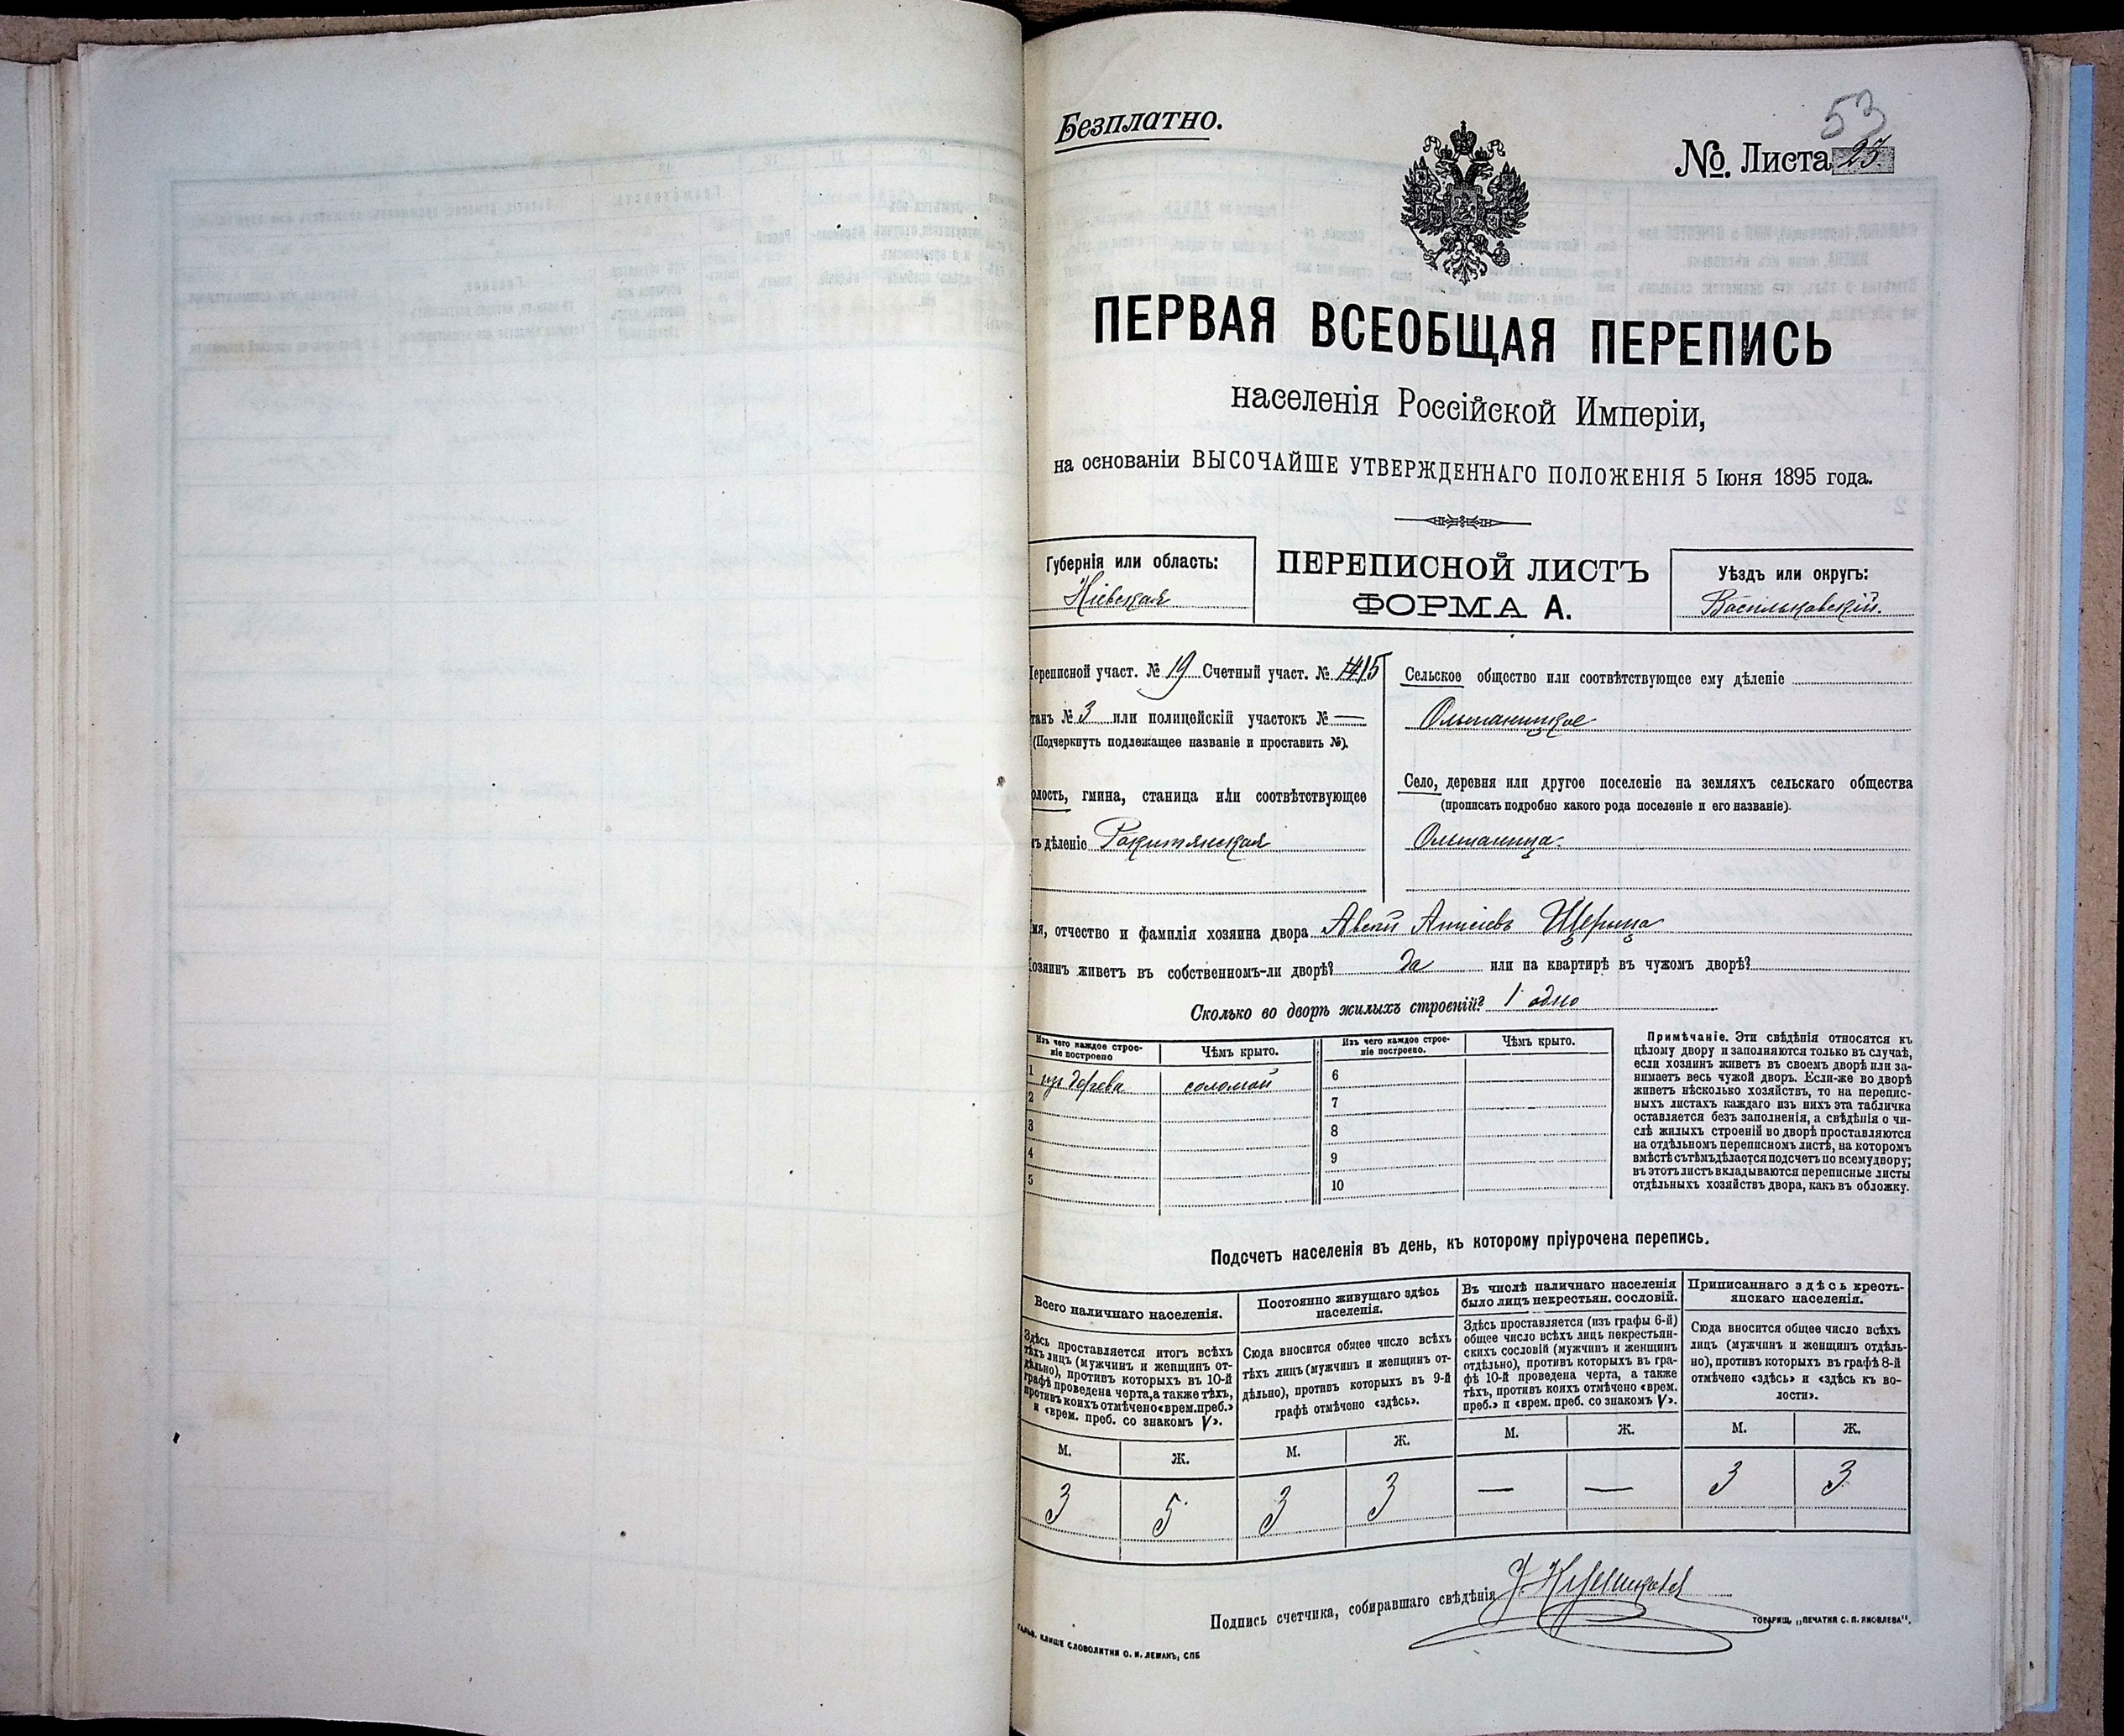 Безплатно.
53
№. Листа 23.
ПЕРВАЯ ВСЕОБЩАЯ ПЕРЕПИСЬ
населенія Россійской Имперіи,
на основаніи ВЫСОЧАЙШЕ УТВЕРЖДЕННАГО ПОЛОЖЕНІЯ 5 Іюня 1895 года.
Губернія или область:
Кіевская
ПЕРЕПИСНОЙ ЛИСТЪ
ФОРМА А.
Уѣздъ или округъ:
Васильковскій.
Переписной участ. № 19 Счетный участ. № 15
танъ № 3 или полицейскій участокъ № —
(Подчеркнуть подлежащее названіе и проставить №).
олость, гмина, станица или соотвѣтствующее
ъ дѣленіе Ракитянская
Сельское общество или соотвѣтствующее ему дѣленіе
Ольшаницкое
Село, деревня или другое поселеніе на земляхъ сельскаго общества
(прописать подробно какого рода поселеніе и его названіе).
Ольшаница.
мя, отчество и фамилія хозяина двора Щерица
Хозяинъ живетъ въ собственномъ-ли дворѣ? да или на квартирѣ въ чужомъ дворѣ?
Сколько во дворѣ жилыхъ строеній? 1 одно
Изъ чего каждое строе-
ніе построено
Чѣмъ крыто.
Изъ чего каждое строе-
ніе построено.
Чѣмъ крыто.
1 изъ дерева соломой 6
2 7
3 8
4 9
5 10
Примѣчаніе. Эти свѣдѣнія относятся къ
цѣлому двору и заполняются только въ случаѣ,
если хозяинъ живетъ въ своемъ дворѣ или за-
нимаетъ весь чужой дворъ. Если-же во дворѣ
живетъ нѣсколько хозяйствъ, то на перепис-
ныхъ листахъ каждаго изъ нихъ эта табличка
оставляется безъ заполненія, а свѣдѣнія о чи-
слѣ жилыхъ строеній во дворѣ проставляются
на отдѣльномъ переписномъ листѣ, на которомъ
вмѣстѣ съ тѣмъ дѣлается подсчетъ по всему двору;
въ этотъ листъ вкладываются переписные листы
отдѣльныхъ хозяйствъ двора, какъ въ обложку.
Подсчетъ населенія въ день, къ которому пріурочена перепись.
Всего наличнаго населенія.
Здѣсь проставляется итогъ всѣхъ
тѣхъ лицъ (мужчинъ и женщинъ от-
дѣльно), противъ которыхъ въ 10-й
графѣ проведена черта, а также тѣхъ,
противъ коихъ отмѣчено «врем. преб.»
и «врем. преб. со знакомъ V».
Постоянно живущаго здѣсь
населенія.
Сюда вносится общее число всѣхъ
тѣхъ лицъ (мужчинъ и женщинъ от-
дѣльно), противъ которыхъ въ 9-й
графѣ отмѣчено «здѣсь».
Въ числѣ наличнаго населенія
было лицъ некрестьян. сословій.
Здѣсь проставляется (изъ графы 6-й)
общее число всѣхъ лицъ некрестьян-
скихъ сословій (мужчинъ и женщинъ
отдѣльно), противъ которыхъ въ гра-
фѣ 10-й проведена черта, а также
тѣхъ, противъ коихъ отмѣчено «врем.
преб.» и «врем. преб. со знакомъ V».
Приписаннаго здѣсь кресть-
янскаго населенія.
Сюда вносится общее число всѣхъ
лицъ (мужчинъ и женщинъ отдѣль-
но), противъ которыхъ въ графѣ 8-й
отмѣчено «здѣсь» и «здѣсь къ во-
лости».
М. Ж. М. Ж. М. Ж. М. Ж.
3 5 3 3 — — 3 3
Подпись счетчика, собиравшаго свѣдѣнія
ГАЛЬВ. КЛИШЕ СЛОВОЛИТНИ О. И. ЛЕМАНЪ, СПБ
ТОВАРИЩ. „ПЕЧАТНЯ С. П. ЯКОВЛЕВА".